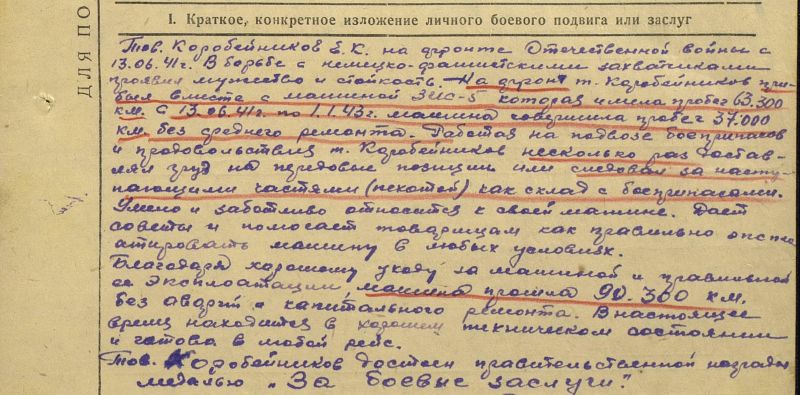 I. Краткое, конкретное изложение личного боевого подвига или заслуг
ДЛЯ ПО
Тов. Коробейников Е.К. на фронте Отечественной войны с
13.06.41г. В борьбе с немецко-фашистскими захватчиками
проявил мужество и стойкость. На фронт т. Коробейников при-
был вместе с машиной ЗИС-5 которая имела пробег 63.300
км. С 13.06.41г. по 1.1.43г. машина совершила пробег 37.000
км. без среднего ремонта. Работая на подвозе боеприпасов
и продовольствия т. Коробейников несколько раз достав-
лял груз на передовые позиции или следовал за насту-
пающими частями (пехотой) как склад с боеприпасами.
Умело и заботливо относится к своей машине. Дает
советы и помогает товарищам как правильно экспло
атировать машину в любых условиях.
Благодаря хорошему уходу за машиной и правильной
ее эксплоатации машина прошла 90.300 км.
без аварий и капитального ремонта. В настоящее
время находится в хорошем техническом состоянии
и готова в любой рейс.
Тов. Коробейников достоин правительственной награды
медалью „За боевые заслуги".